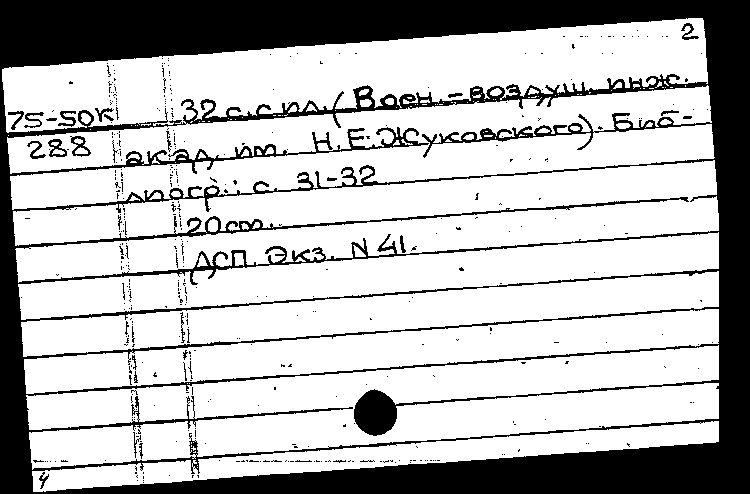 2
75-50к 32 с. с ил. (Воен.-воздуш. инж.
288 акад. им. Н.Е. Жуковского). Биб-
лиогр.: с. 31-32
20 см.
ДСП. Экз. N 41.
4